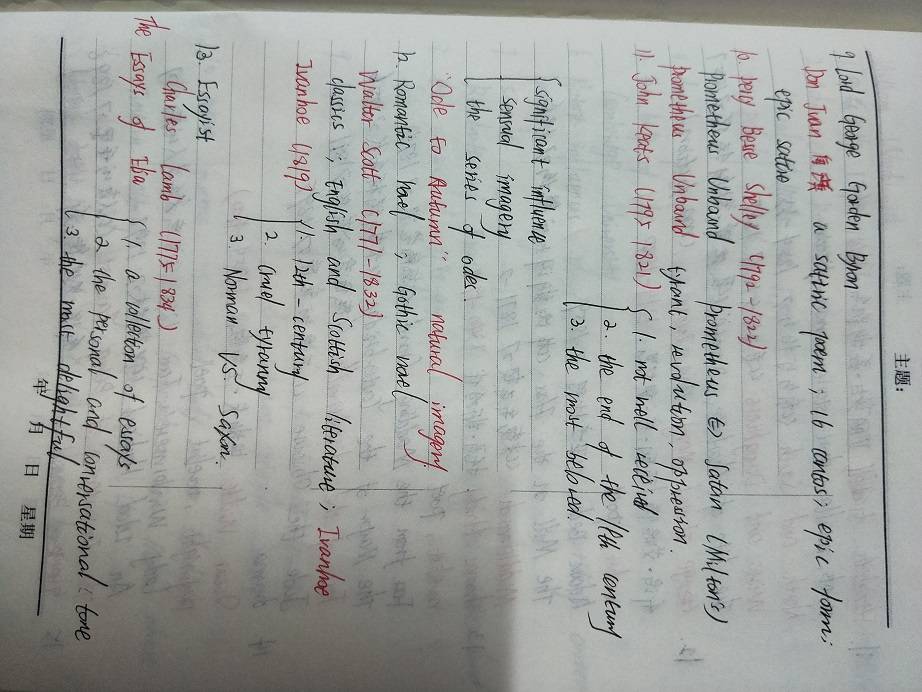 主题:
年 月 日 星期
9. Lord George Gorden Byron
Don Juan 唐璜 a satiric poem; 16 cantos; epic form;
epic satire
10. Percy Besse Shelly (1792-1822)
Prometheus Unband Prometheus ⇔ Satan (Milton's)
Prometheus Unband tyrant, revolution, oppression.
11. John Keats (1795-1821) { 1. not well received
2. the end of the 19th century
3. the most beloved.
{ significant influence
sensual imagery
the series of odes.
"Ode to Autumn" natural imagery
12. Romantic novel; Gothic novel
Walter Scott (1771-1832)
classics; English and Scottish literature; Ivanhoe
Ivanhoe (1819) { 1. 12th-century
2. cruel tyranny
3. Norman VS. Saxon.
13. Essayist
Charles Lamb (1775-1834)
The Essays of Elia { 1. a collection of essays
2. the personal and conversational tone
3. the most delightful